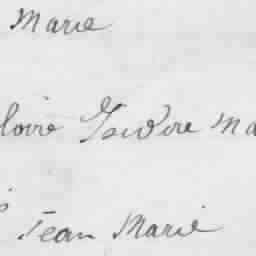 Marie
loire Isidore Ma
Jean Marie